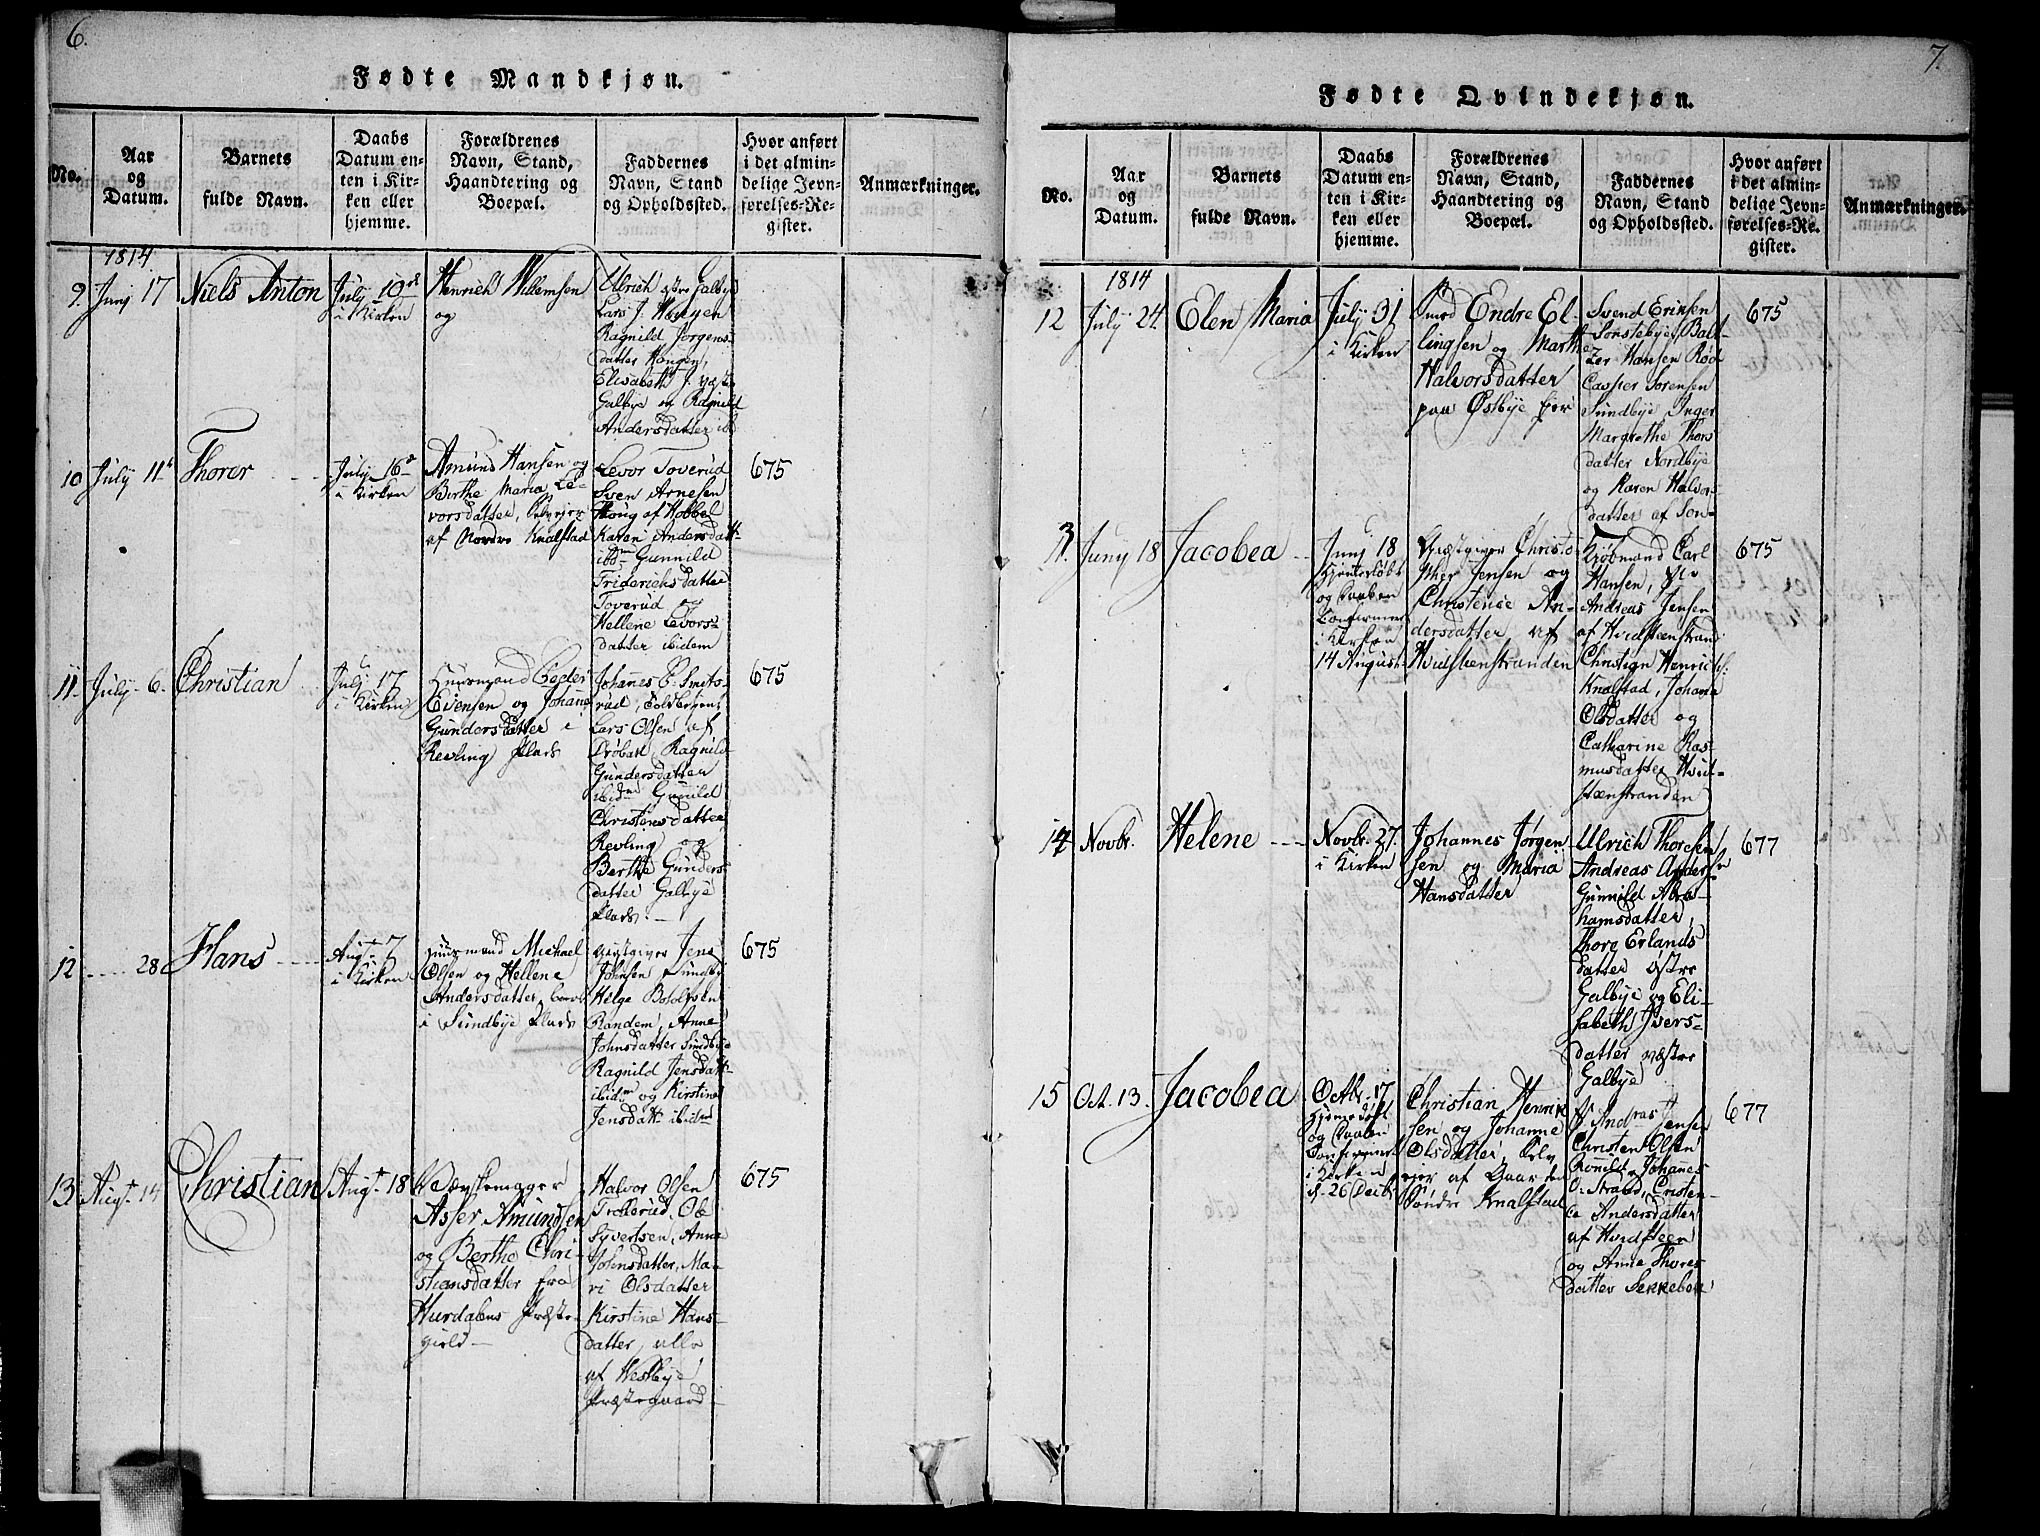 6.
Fødte Mandkjøn.
No.
Aar
og
Datum.
Barnets
fulde Navn.
Daabs
Datum en-
ten i Kir-
ken eller
hjemme.
Forældrenes
Navn, Stand,
Haandtering og
Boepæl.
Faddernes
Navn, Stand
og Opholdssted.
Hvor anført
i det almin-
delige Jevn-
førelses-Re-
gister.
Anmærkninger.
1814.
9. Junj 17
Niels Anton
July 10
i Kirken
Henrich Willemsen
og
Ulrich østre Galbye
Lars J. Hangen
Ragnild Jørgens-
datter Hangen,
Elisabeth J. væstre
Galbye og Ragnild
Andersdatter ib
10 July 11
Thorer
July 16
i Kirken
Amund Hansen og
Berthe Maria Le-
vorsdatter,
af Nordre Knalstad
Levor Toverud
Sven Arnesen
Houg af Hobbel
Karen Andersdatt
ibdm Gunnild
Friderichsdatter
Toverud og
Hellene Levors-
datter ibidem
675
11 July 6.
Christian
July 17
i Kirken
Huusmand Peder
Eivensen og Johanne
Gundersdatter i
Revling Plads
Johannes E. Smits-
rud,
Lars Olsen af
Drøbak, Ragnild
Gundersdatter
ibidm Gunnild
Christensdatter
Revling og
Berthe Gunders-
datter Galbye
Plads.
675
12 28
Hans
Augt 7
i Kirken
Huusmand Michael
Olsen og Hellene
Andersdatter,
i Sundbye Plads
Jens
Johnsen Sundby
Helge Bololfsen
Randem, Anne
Johnsdatter Sundbye
Ragnild Jensdatt
ibidm og Kirstine
Jensdatt ibidm
675
13 Augt. 14
Christian
Augt. 18
Asser Amundsen
og Berthe Chri-
stiansdatter fra
Hurdalens Præste-
gield
Halvor Olsen
Trollerud, Ole
Syvertsen, Anna
Johensdatter, Ma-
ri Olsdatter
Kirstine Hans-
datter, alle
af Westbye
Præstegaard
675
7.
Fødte Qvindekjøn.
No.
Aar
og
Datum.
Barnets
fulde Navn.
Daabs
Datum en-
ten i Kir-
ken eller
hjemme.
Forældrenes
Navn, Stand,
Haandtering og
Boepæl.
Faddernes
Navn, Stand
og Opholdssted.
Hvor anført
i det almin-
delige Jevn-
førelses-Re-
gister.
Anmærkninger.
1814
12 July 24.
Elen Maria
July 31
i Kirken
Smed Endre El-
lingsen og Marthe
Halvorsdatter
paa Østbye Eier
Svend Eriksen
Sønstebye, Balt-
zer Hansen Rød
Casper Sørensen
Sundbye, Inger
Margrethe Thors
datter Nordbye
og Karen Halvors-
datter af Søn-
675
Juny 18
Jacobea
Junj 18
Hjemmedøbt
og Daaben
Confirmeret
i Kirken
14 August
Giæstgiver Christo-
pher Jensen og
Christense An-
dersdatter af
Hvidsteenstranden
Kjøbmand Carl
Hansen,
Andreas Jensen
af Hvidsteenstrand
Christian Henrichs:
Knalstad, Johana
Olsdatter og
Catharine Ras-
musdatter Hvid-
steenstranden
675
14 Novbr.
Helene
Novbr. 27.
i Kirken
Johannes Jørgen
sen og Maria
Hansdatter
Ulrich Thoresen
Andreas Anders
Gunnild Abra-
hamsdatter,
Thore Erlands
datter østre
Galbye og Eli-
sabeth Ivers-
datter væstre
Galbye
677
15 Oct. 13.
Jacobea
Octbr. 17
Hjemmedøbt
og Daaben
Confirmeret
i Kirken
d. 26 Decbr
Christian Henrik
sen og Johanne
Olsdatter, Selv
eier af Gaarden
Søndre Knalstad
Andreas Jensen
Christen Olsen
Ronnild Johannes
D. Strand, Cristen-
ce Andersdatter
af Hvidsteen
og Anne Thores
datter Sekkebek
677